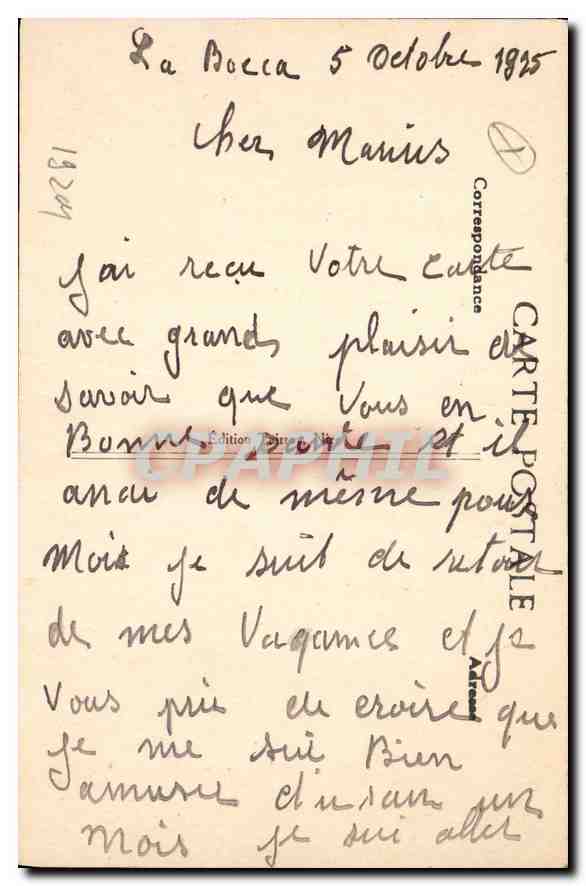 La Bocca 5 Octobre 1925
Cher Marius
J'ai reçu Votre Carte
avec grands plaisir de
savoir que Vous en
Bonne santé et il
anai de même pour
Mois je suit de retour
de mes Vaganses et je
Vous prie de croire que
Je me suit Bien
amusée durant un
Mois je sui allet
CARTE POSTALE
Correspondance
Adresse
CPAPHIL